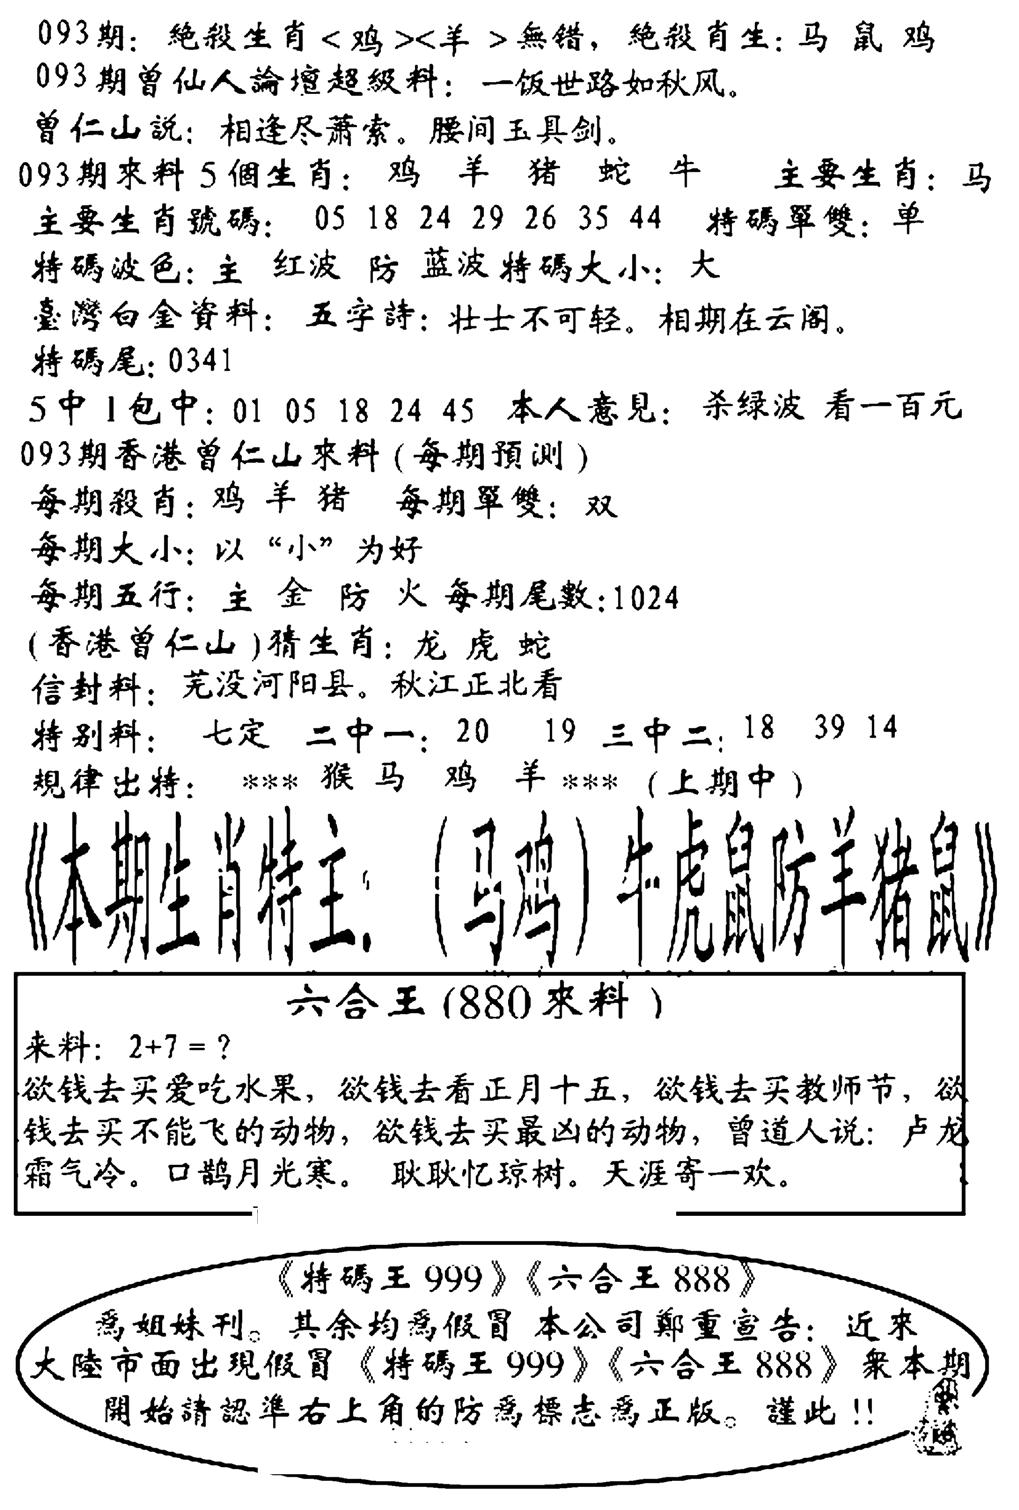 093期：絶殺生肖<鸡><羊 >無错，絶殺肖生：马 鼠 鸡
093期曾仙人論壇超級料：一饭世路如秋风。
曾仁山説：相逢尽萧索。腰间玉具剑。
093期來料5個生肖：鸡 羊 猪 蛇 牛 主要生肖：马
主要生肖號碼：05 18 24 29 26 35 44 特碼單雙：单
特碼波色：主 红波 防 蓝波 特碼大小：大
臺灣白金資料：五字詩：壮士不可轻。相期在云阁。
特碼尾：0341
5中1包中：01 05 18 24 45 本人意見：杀绿波 看一百元
093期香港曾仁山來料(每期預測)
每期殺肖：鸡 羊 猪 每期單雙：双
每期大小：以“小”为好
每期五行：主 金 防 火 每期尾數：1024
(香港曾仁山)猜生肖：龙 虎 蛇
信封料：芜没河阳县。秋江正北看
特别料：七定 二中一：20 19 三中二：18 39 14
規律出特：*** 猴 马 鸡 羊 *** (上期中)
《本期生肖特主：(马鸡)牛虎鼠防羊猪鼠》
六合王(880來料)
来料：2+7=？
欲钱去买爱吃水果，欲钱去看正月十五，欲钱去买教师节，欲
钱去买不能飞的动物，欲钱去买最凶的动物，曾道人说：卢龙
霜气冷。口鹊月光寒。 耿耿忆琼树。天涯寄一欢。
《特碼王999》《六合王888》
爲姐妹刊。其余均爲假冒 本公司鄭重宣告：近來
大陸市面出現假冒《特碼王999》《六合王888》衆本期
開始請認準右上角的防爲標志爲正版。謹此!!